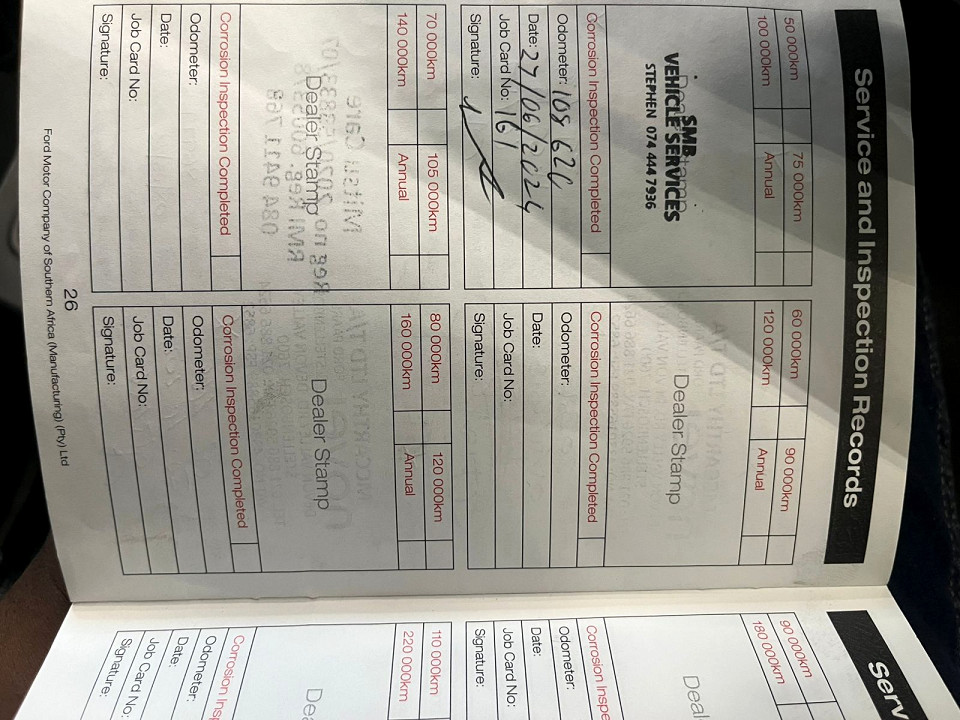 Service and Inspection Records
50 000km 75 000km
100 000km Annual
Dealer Stamp
SMB
VEHICLE SERVICES
STEPHEN 074 444 7936
Corrosion Inspection Completed
Odometer: 108 626
Date: 27/06/2024
Job Card No: 161
Signature:
60 000km 90 000km
120 000km Annual
Dealer Stamp
Corrosion Inspection Completed
Odometer:
Date:
Job Card No:
Signature:
70 000km 105 000km
140 000km Annual
Dealer Stamp
Corrosion Inspection Completed
Odometer:
Date:
Job Card No:
Signature:
80 000km 120 000km
160 000km Annual
Dealer Stamp
Corrosion Inspection Completed
Odometer:
Date:
Job Card No:
Signature:
26
Ford Motor Company of Southern Africa (Manufacturing) (Pty) Ltd
Serv
90 000km
180 000km
Deal
Corrosion Inspe
Odometer:
Date:
Job Card No:
Signature:
110 000km
220 000km
Dea
Corrosion Insp
Odometer:
Date:
Job Card No:
Signature: